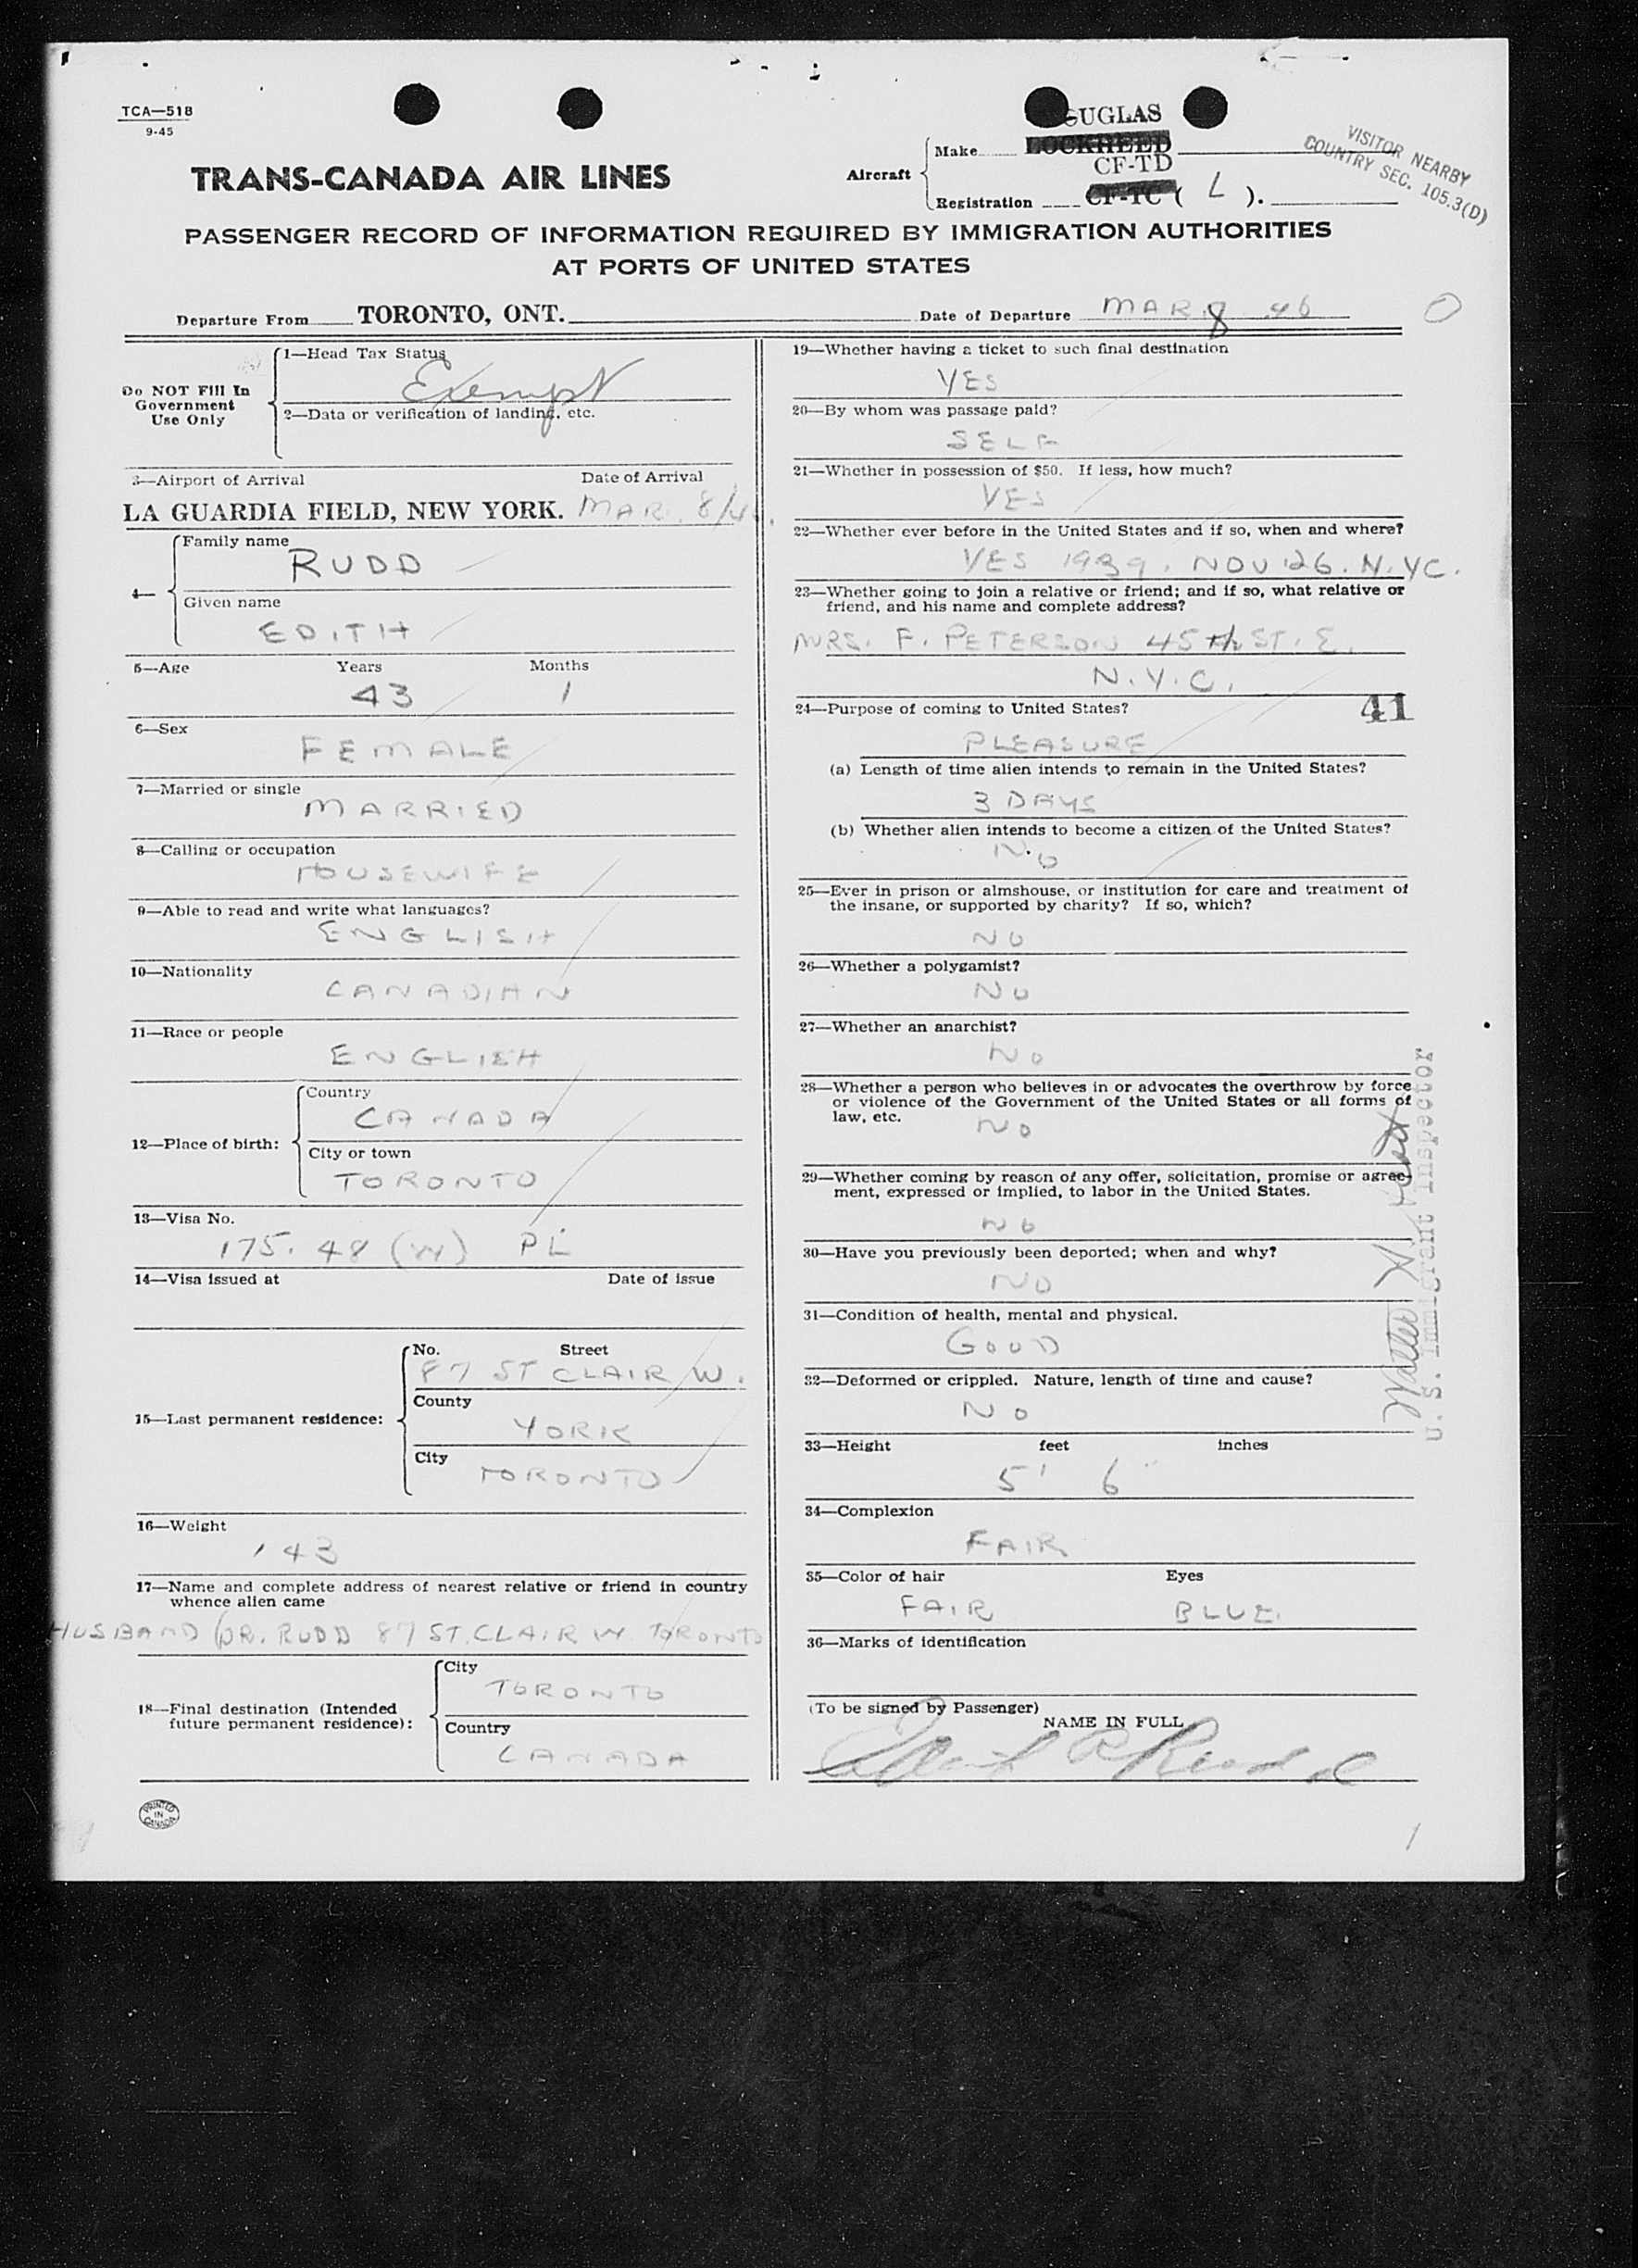 TCA—518
9-45
TRANS-CANADA AIR LINES
Aircraft
Make
UGLAS
LOCKHEED
CF-TD
Registration CF-TC ( L ).
VISITOR NEARBY
COUNTRY SEC. 105.3(D)
PASSENGER RECORD OF INFORMATION REQUIRED BY IMMIGRATION AUTHORITIES
AT PORTS OF UNITED STATES
Departure From TORONTO, ONT. Date of Departure MAR 8 46
Do NOT Fill In
Government
Use Only
1—Head Tax Status
Exempt
2—Data or verification of landing, etc.
3—Airport of Arrival Date of Arrival
LA GUARDIA FIELD, NEW YORK. MAR. 8/46.
4—
Family name
RUDD
Given name
EDITH
5—Age Years Months
43 1
6—Sex
FEMALE
7—Married or single
MARRIED
8—Calling or occupation
HOUSEWIFE
9—Able to read and write what languages?
ENGLISH
10—Nationality
CANADIAN
11—Race or people
ENGLISH
12—Place of birth:
Country
CANADA
City or town
TORONTO
13—Visa No.
175. 48 (W) PL
14—Visa issued at Date of issue
15—Last permanent residence:
No. Street
87 ST CLAIR W.
County
YORK
City
TORONTO
16—Weight
143
17—Name and complete address of nearest relative or friend in country
whence alien came
HUSBAND (DR. RUDD 87 ST. CLAIR W. TORONTO
18—Final destination (Intended
future permanent residence):
City
TORONTO
Country
CANADA
PRINTED
IN
CANADA
19—Whether having a ticket to such final destination
YES
20—By whom was passage paid?
SELF
21—Whether in possession of $50. If less, how much?
YES
22—Whether ever before in the United States and if so, when and where?
YES 1939. NOV 26. N.YC.
23—Whether going to join a relative or friend; and if so, what relative or
friend, and his name and complete address?
MRS. F. PETERSON 45th ST. E.
N.Y.C.
24—Purpose of coming to United States?
41
PLEASURE
(a) Length of time alien intends to remain in the United States?
3 DAYS
(b) Whether alien intends to become a citizen of the United States?
NO
25—Ever in prison or almshouse, or institution for care and treatment of
the insane, or supported by charity? If so, which?
NO
26—Whether a polygamist?
NO
27—Whether an anarchist?
NO
28—Whether a person who believes in or advocates the overthrow by force
or violence of the Government of the United States or all forms of
law, etc.
NO
29—Whether coming by reason of any offer, solicitation, promise or agree-
ment, expressed or implied, to labor in the United States.
NO
30—Have you previously been deported; when and why?
NO
31—Condition of health, mental and physical.
GOOD
32—Deformed or crippled. Nature, length of time and cause?
NO
33—Height feet inches
5' 6"
34—Complexion
FAIR
35—Color of hair Eyes
FAIR BLUE.
36—Marks of identification
(To be signed by Passenger)
NAME IN FULL
Edith R Rudd
Walter
U. S. Immigrant Inspector
1